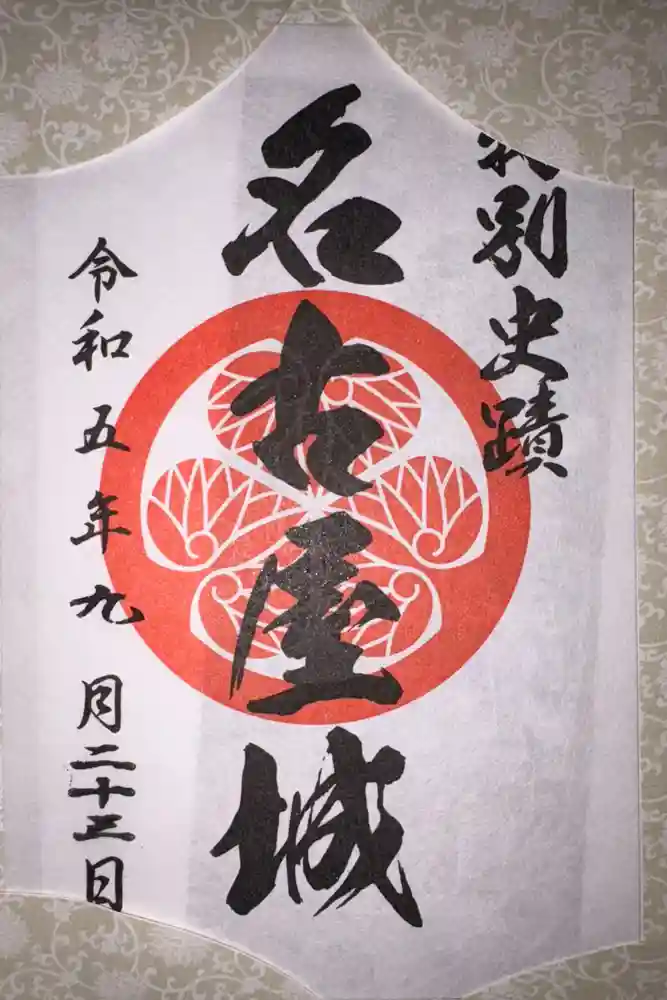 特別史蹟
名古屋城
令和五年九月二十三日